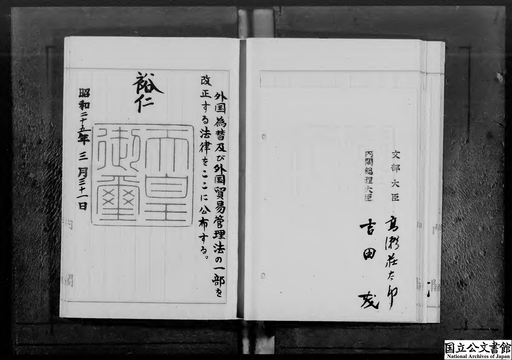 文部大臣
高瀬荘太郎
内閣総理大臣
吉田茂
外国為替及び外国貿易管理法の一部を
改正する法律をここに公布する。
裕仁
天皇
御璽
昭和二十五年三月三十一日
国立公文書館
National Archives of Japan